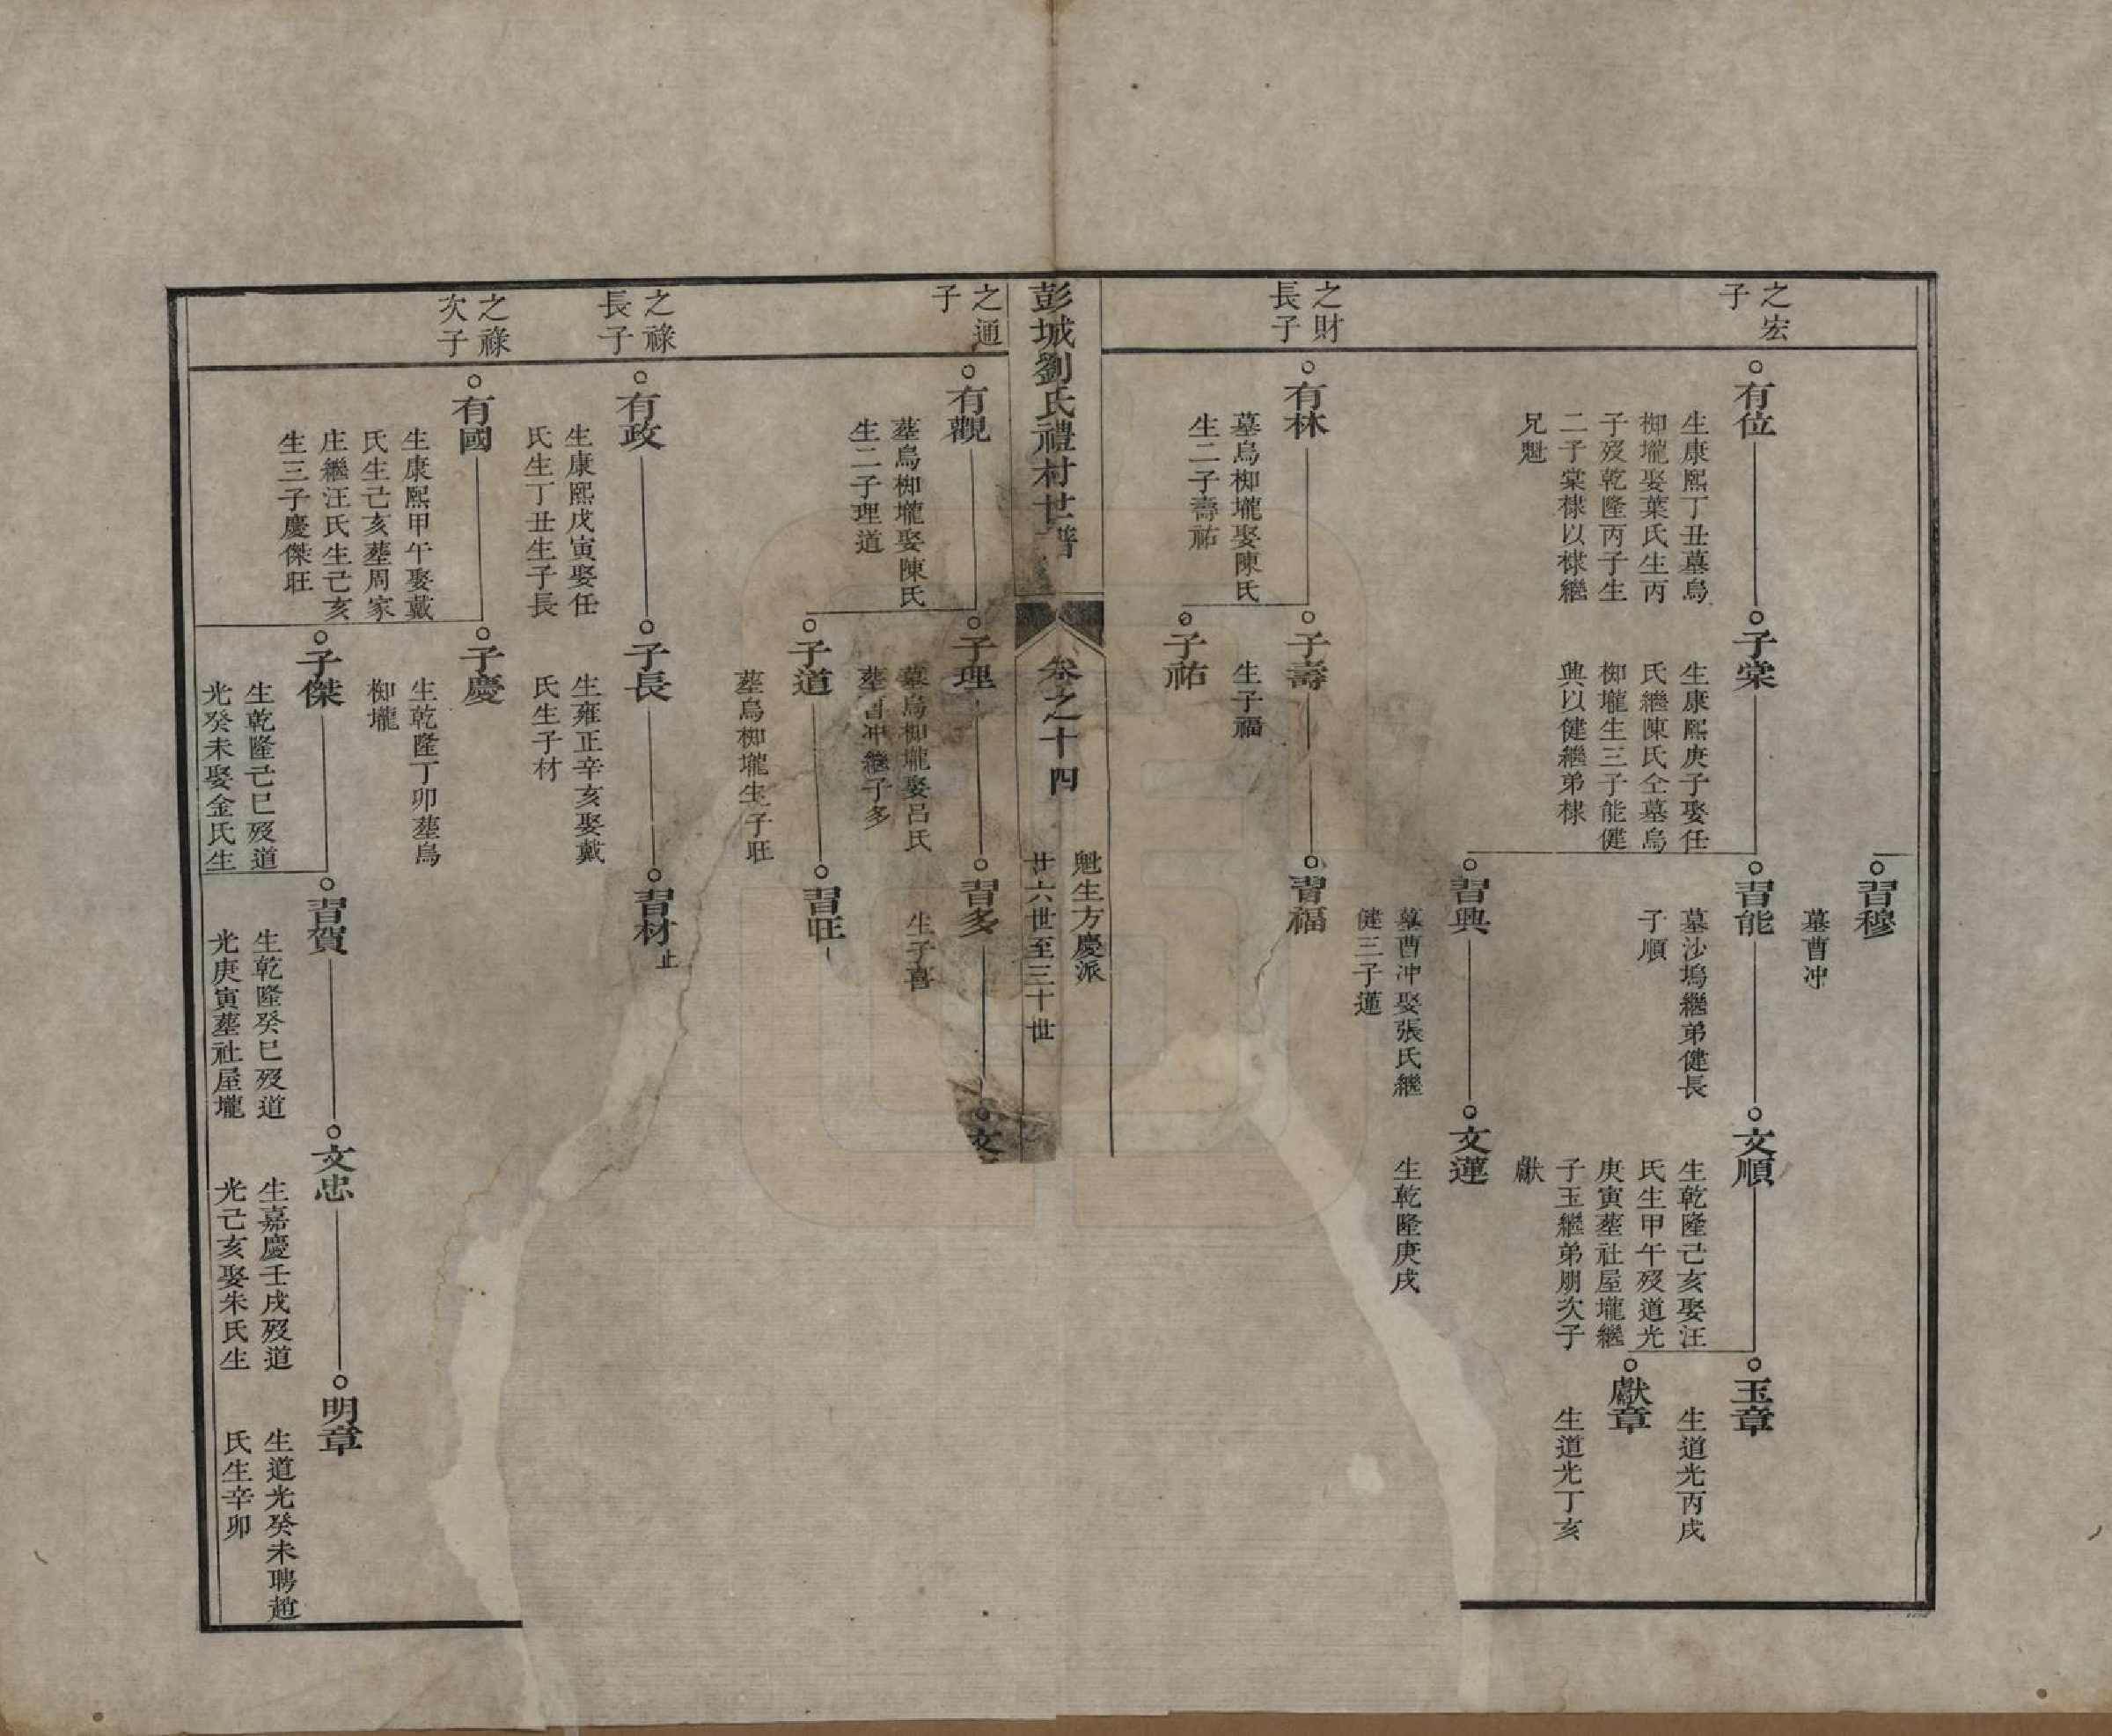 之宏
子
習穆
墓曹冲
有位
生康熙丁丑墓烏
柳壠娶葉氏生丙
子歿乾隆丙子生
二子棠棣以棣繼
兄魁
子棠
生康熙庚子娶任
氏繼陳氏仝墓烏
柳壠生三子能健
興以健繼弟棣
習能
墓沙塢繼弟健長
子順
文順
生乾隆己亥娶汪
氏生甲午歿道光
庚寅塟社屋壠繼
子玉繼弟朋次子
獻
玉章
生道光丙戌
獻章
生道光丁亥
習興
墓曹冲娶張氏繼
健三子蓮
文蓮
生乾隆庚戌
之財
長子
有林
墓烏柳壠娶陳氏
生二子壽祐
子壽
生子福
習福
子祐
彭城劉氏禮村世譜
卷之十四
魁生方慶派
廿六世至三十世
之通
子
有觀
塟烏柳壠娶陳氏
生二子理道
子理
墓烏柳壠娶呂氏
塟曹冲繼子多
習多
生子喜
文
子道
塟烏柳壠生子旺
習旺
之祿
長子
有政
生康熙戊寅娶任
氏生丁丑生子長
子長
生雍正辛亥娶戴
氏生子材
習材止
之祿
次子
有國
生康熙甲午娶戴
氏生己亥塟周家
庄繼汪氏生己亥
生三子慶傑旺
子慶
生乾隆丁卯塟烏
柳壠
子傑
生乾隆己巳歿道
光癸未娶金氏生
習賀
生乾隆癸巳歿道
光庚寅塟社屋壠
文忠
生嘉慶壬戌歿道
光己亥娶朱氏生
明章
生道光癸未聘趙
氏生辛卯